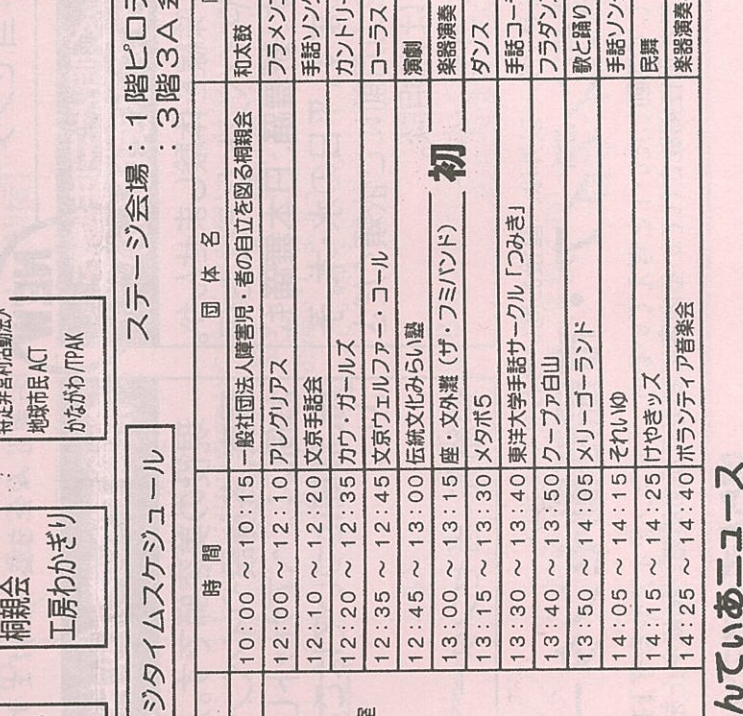 特定非営利活動法人
地球市民ACT
かながわ/TPAK
桐親会
工房わかぎり
ジタイムスケジュール
ステージ会場：1階ピロ
：3階3A
時間 団体名
10:00 ～ 10:15 一般社団法人障害児・者の自立を図る桐親会 和太鼓
12:00 ～ 12:10 アレグリアス フラメン
12:10 ～ 12:20 文京手話会 手話ソング
12:20 ～ 12:35 カウ・ガールズ カントリー
12:35 ～ 12:45 文京ウェルファー・コール コーラス
12:45 ～ 13:00 伝統文化みらい塾 演劇
13:00 ～ 13:15 座・文外灘（ザ・フミバンド） 初 楽器演奏
13:15 ～ 13:30 メタボ5 ダンス
13:30 ～ 13:40 東洋大学手話サークル「つみき」 手話コー
13:40 ～ 13:50 クープァ白山 フラダンス
13:50 ～ 14:05 メリーゴーランド 歌と踊り
14:05 ～ 14:15 それいゆ 手話ソング
14:15 ～ 14:25 けやきッズ 民舞
14:25 ～ 14:40 ボランティア音楽会 楽器演奏
んてぃあニュース